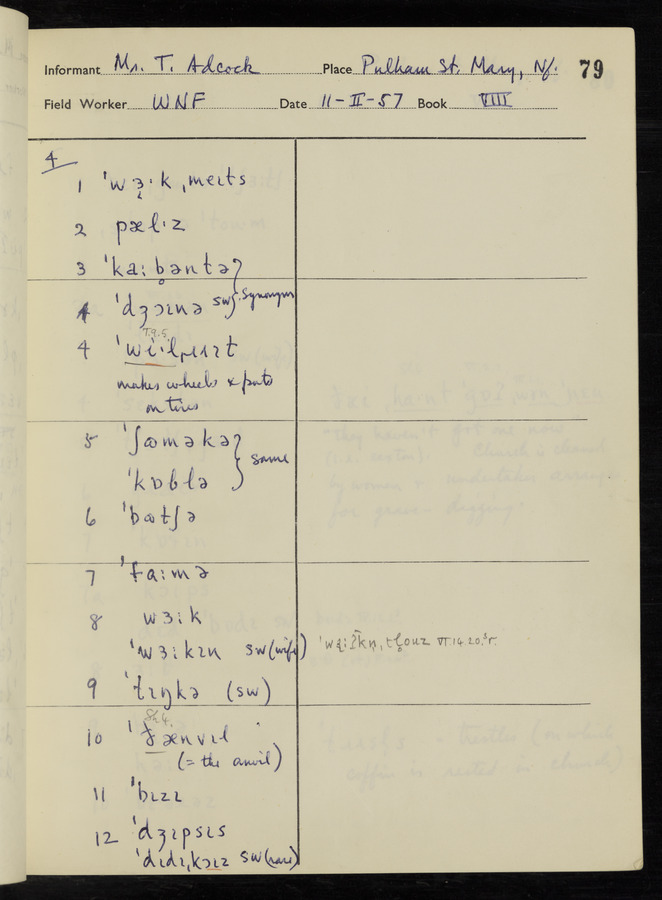 Informant Mr. T. Adcock Place Pulham St. Mary, Nf. 79
Field Worker WNF Date 11-II-57 Book VIII
4
1 ˈwɜ̣·k ˌmeɪts
2 pæl·z
3 ˈkaːbəntə
4 ˈdʒɔɪnə sw } synonyms
T.q.5.
4 ˈwiˑlˌɹɪɪt
makes wheels & puts
on tires
5 ˈʃɷməkə
ˈkɒblə } same
6 ˈbɷtʃə
7 ˈfaːmə
8 wɜːk
ˈwɜːkɪn sw (wife) VI.14.20.
9 ˈtɪŋkə (sw)
Sh 4.
10 ˈðænvɪl
(= the anvil)
11 ˈbɪzɪ
12 ˈdʒɪpsɪs
ˈdɪdɪˌkɔɪz sw (rare)